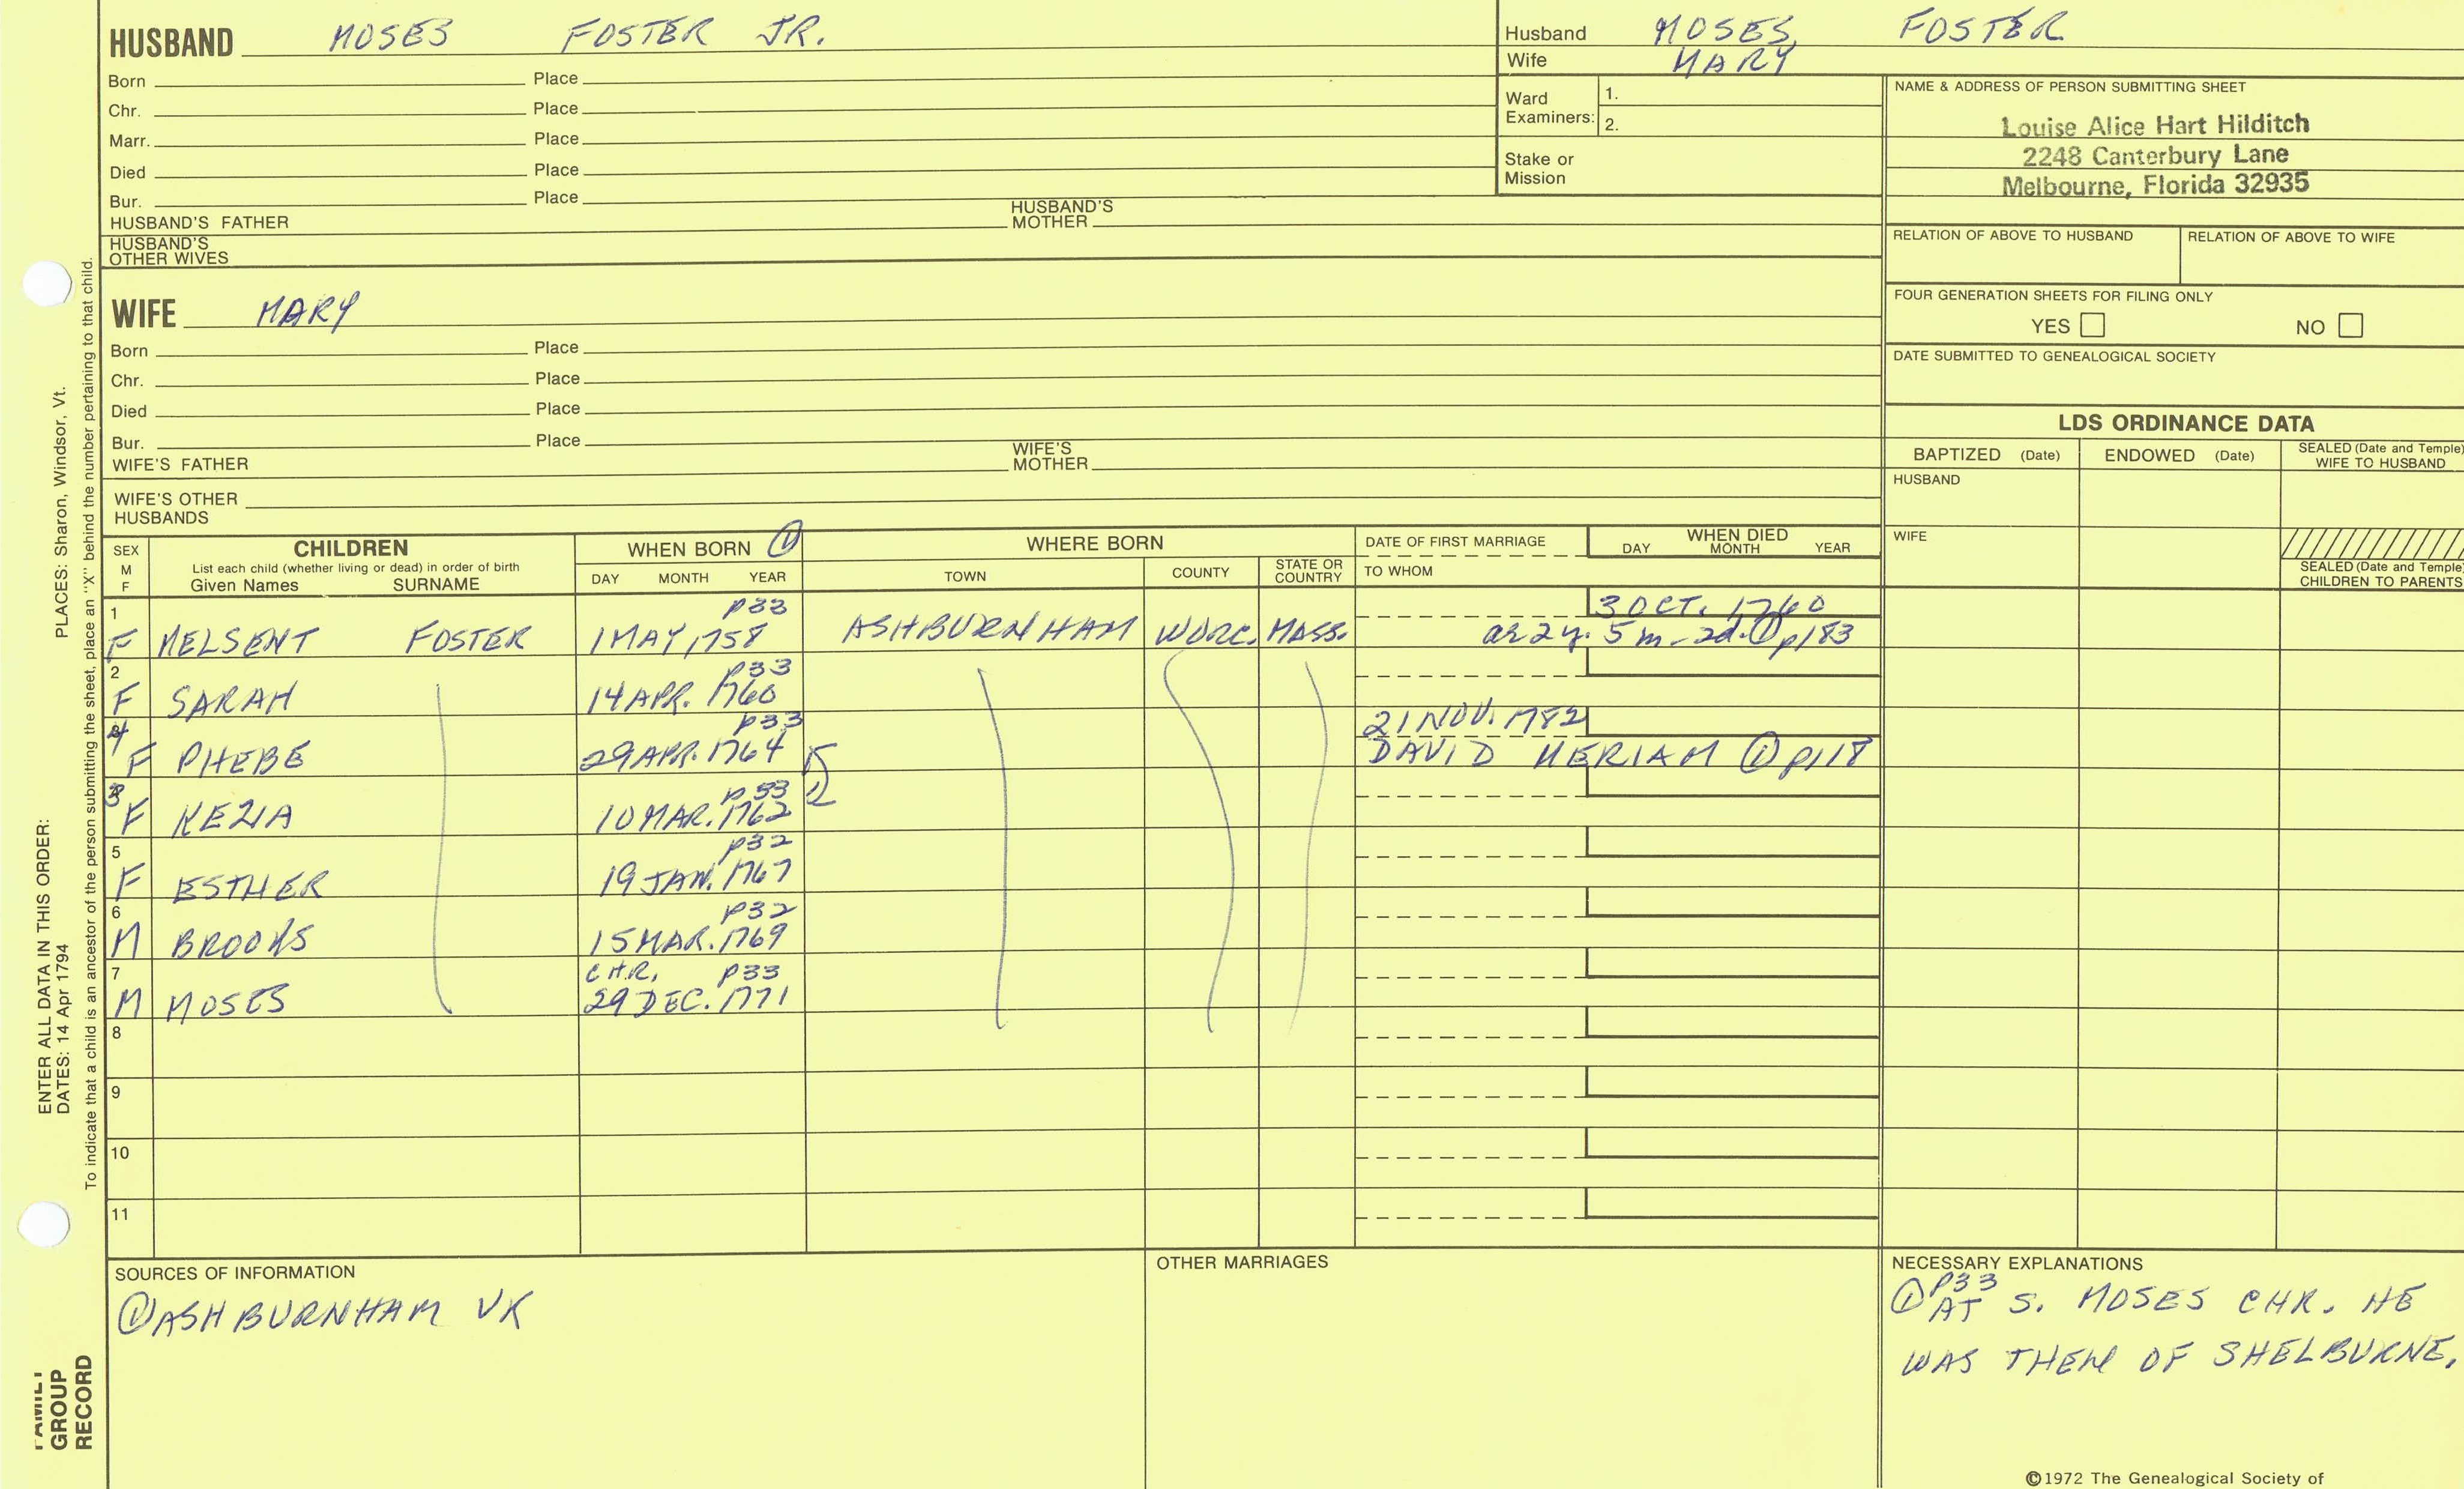 HUSBAND MOSES FOSTER JR.
Born Place
Chr. Place
Marr. Place
Died Place
Bur. Place
HUSBAND'S FATHER HUSBAND'S MOTHER
HUSBAND'S OTHER WIVES
Husband MOSES FOSTER
Wife MARY
Ward Examiners: 1.
2.
Stake or Mission
NAME & ADDRESS OF PERSON SUBMITTING SHEET
Louise Alice Hart Hilditch
2248 Canterbury Lane
Melbourne, Florida 32935
RELATION OF ABOVE TO HUSBAND RELATION OF ABOVE TO WIFE
FOUR GENERATION SHEETS FOR FILING ONLY
YES NO
DATE SUBMITTED TO GENEALOGICAL SOCIETY
WIFE MARY
Born Place
Chr. Place
Died Place
Bur. Place
WIFE'S FATHER WIFE'S MOTHER
WIFE'S OTHER HUSBANDS
LDS ORDINANCE DATA
BAPTIZED (Date) ENDOWED (Date) SEALED (Date and Temple) WIFE TO HUSBAND
HUSBAND
WIFE
SEALED (Date and Temple) CHILDREN TO PARENTS
SEX M F
CHILDREN
List each child (whether living or dead) in order of birth
Given Names SURNAME
WHEN BORN ①
DAY MONTH YEAR
WHERE BORN
TOWN COUNTY STATE OR COUNTRY
DATE OF FIRST MARRIAGE
TO WHOM
WHEN DIED
DAY MONTH YEAR
1 p33 3 OCT. 1760
F MELSENT FOSTER 1 MAY, 1758 ASHBURNHAM WORC. MASS. ae 2y. 5m - 2d. ① p183
2 p33
F SARAH 14 APR. 1760
4 p33 21 NOV. 1782
F PHEBE 29 APR. 1764 DAVID MERIAM ① p118
3 p33
F KEZIA 10 MAR. 1762
5 p32
F ESTHER 19 JAN. 1767
6 p32
M BROOKS 15 MAR. 1769
7 CHR. p33
M MOSES 29 DEC. 1771
8
9
10
11
SOURCES OF INFORMATION
① ASHBURNHAM VR
OTHER MARRIAGES
NECESSARY EXPLANATIONS
① P33
AT S. MOSES CHR. HE
WAS THEN OF SHELBURNE.
©1972 The Genealogical Society of
PLACES: Sharon, Windsor, Vt.
To indicate that a child is an ancestor of the person submitting the sheet, place an "X" behind the number pertaining to that child.
ENTER ALL DATA IN THIS ORDER:
DATES: 14 Apr 1794
FAMILY
GROUP
RECORD